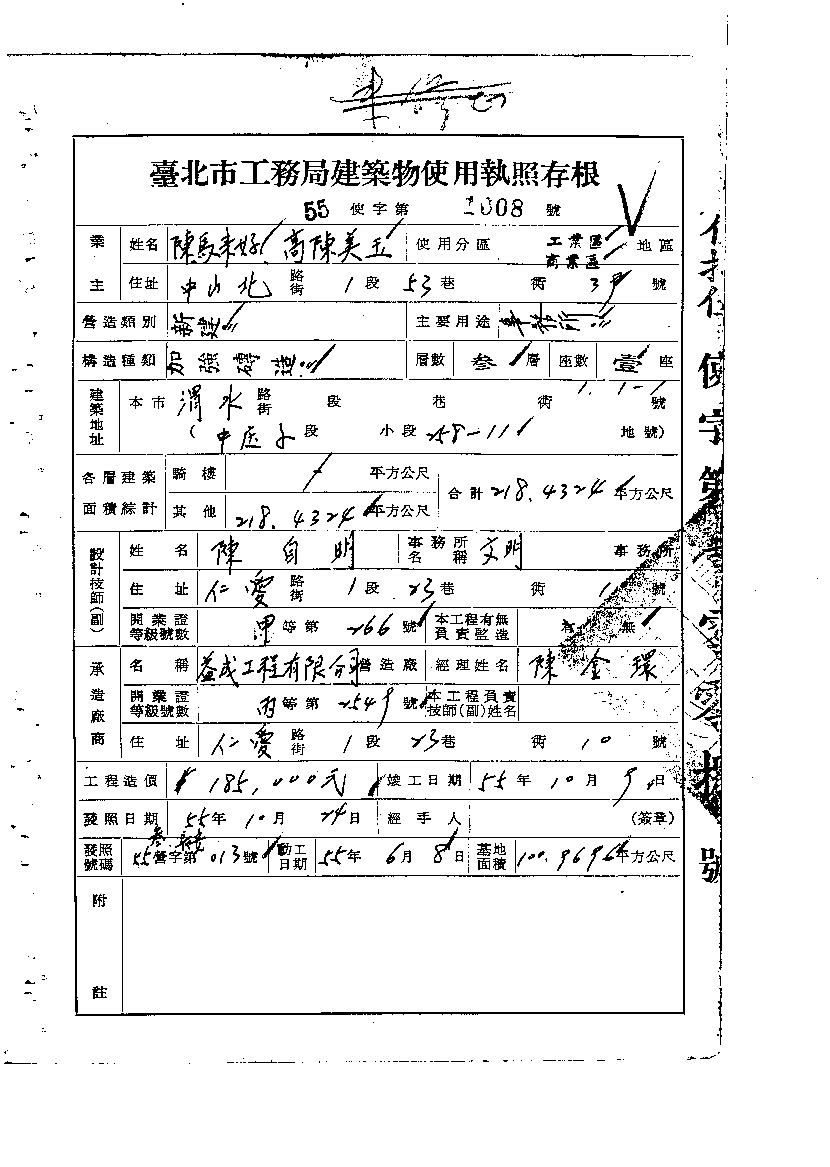 臺北市工務局建築物使用執照存根
55 使字第 1008 號
業主 姓名 陳馬來好 高陳美玉 使用分區 工業區 商業區 地區
住址 中山北 路街 1 段 53 巷 衖 39 號
營造類別 新建 主要用途 事務所
構造種類 加強磚造 層數 叁 層 座數 壹 座
建築地址 本市 渭水 路街 段 巷 衖 1.1-1 號
( 段 小段 258-11 地號)
各層建築面積綜計 騎樓 平方公尺 合計 218.4324 平方公尺
其他 218.4324 平方公尺
設計技師(副) 姓名 陳自明 事務所名稱 文明 事務所
住址 仁愛 路街 1 段 23 巷 衖 號
開業證等級號數 甲 等第 266 號 本工程有無負責監造 有 無
承造廠商 名稱 益成工程有限公司 營造廠 經理姓名 陳金環
開業證等級號數 丙 等第 2549 號 本工程負責技師(副)姓名
住址 仁愛 路街 1 段 23 巷 衖 10 號
工程造價 $185,000元 竣工日期 55 年 10 月 9 日
發照日期 55 年 10 月 24 日 經手人 (簽章)
發照號碼 55 營字第 013 號 動工日期 55 年 6 月 8 日 基地面積 100.9696 平方公尺
附註
使字第
號